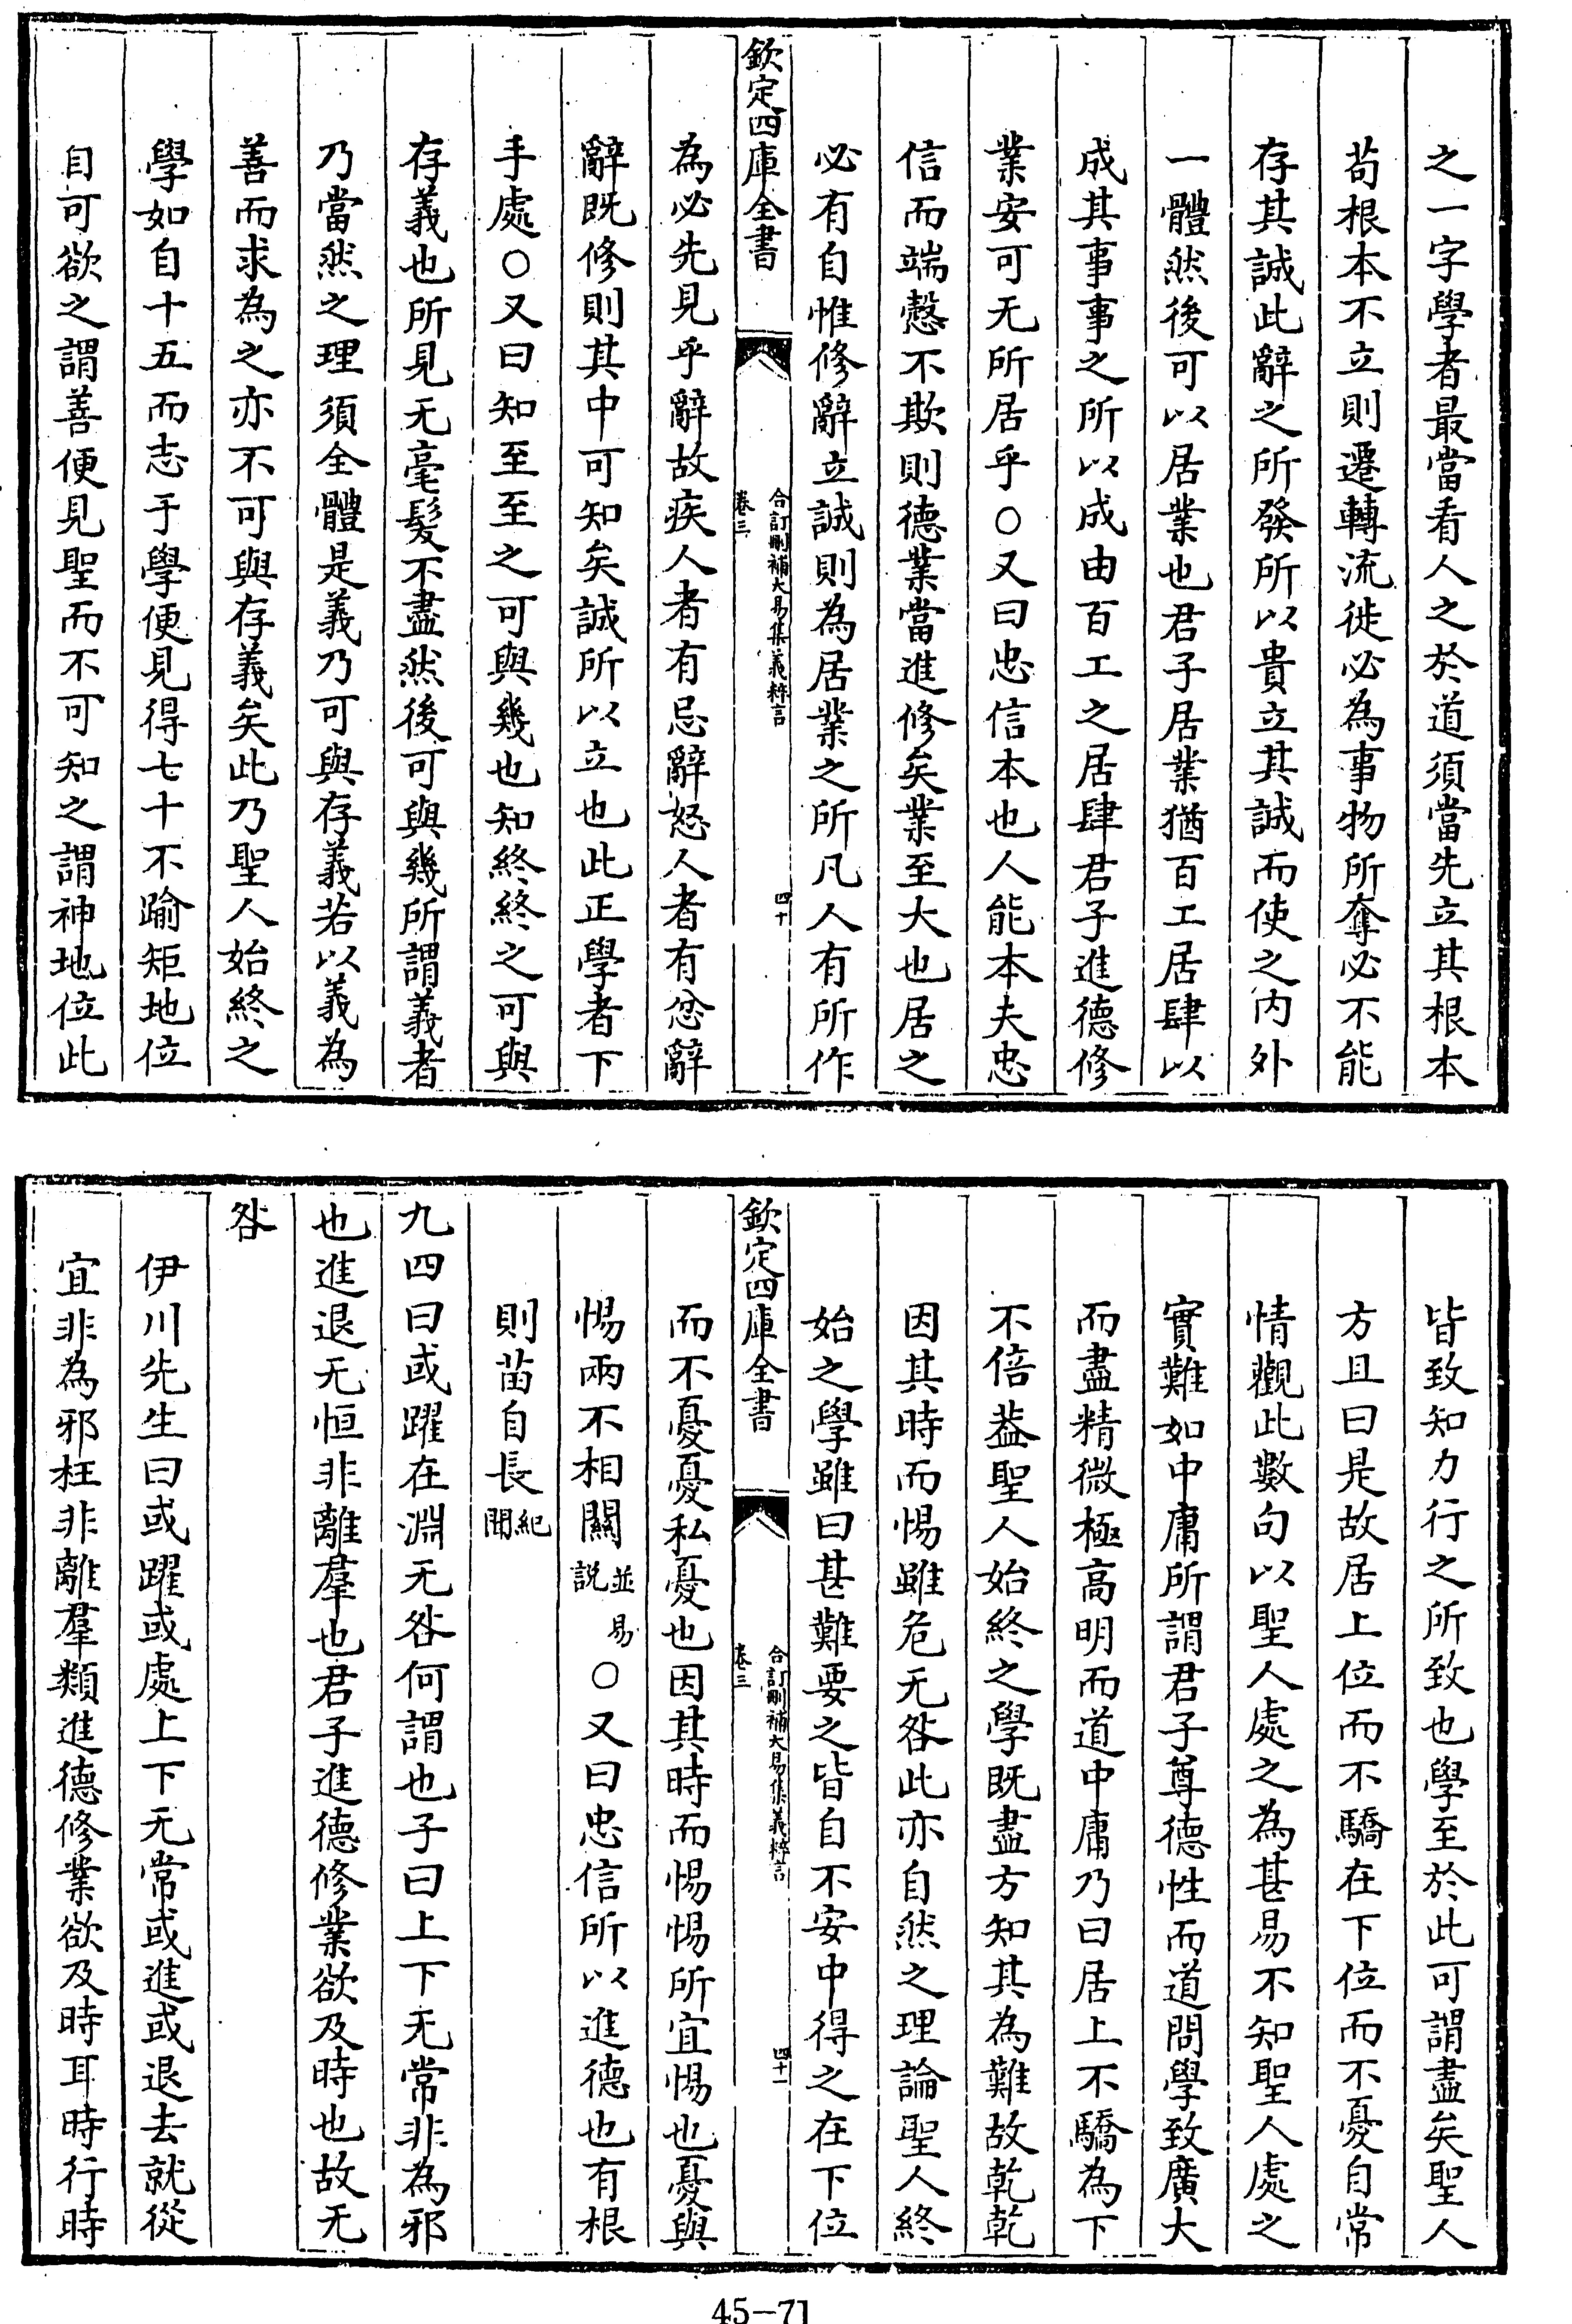 之一字學者最當看人之於道須當先立其根本
苟根本不立則遷轉流徙必為事物所奪必不能
存其誠此辭之所發所以貴立其誠而使之内外
一體然後可以居業也君子居業猶百工居肆以
成其事事之所以成由百工之居肆君子進德修
業安可无所居乎○又曰忠信本也人能本夫忠
信而端慤不欺則德業當進修矣業至大也居之
必有自惟修辭立誠則為居業之所凡人有所作
欽定四庫全書
合訂刪補大易集義粹言
卷三
四十
為必先見乎辭故疾人者有忌辭怒人者有忿辭
辭既修則其中可知矣誠所以立也此正學者下
手處○又曰知至至之可與幾也知終終之可與
存義也所見无毫髮不盡然後可與幾所謂義者
乃當然之理須全體是義乃可與存義若以義為
善而求為之亦不可與存義矣此乃聖人始終之
學如自十五而志于學便見得七十不踰矩地位
自可欲之謂善便見聖而不可知之謂神地位此
皆致知力行之所致也學至於此可謂盡矣聖人
方且曰是故居上位而不驕在下位而不憂自常
情觀此數句以聖人處之為甚易不知聖人處之
實難如中庸所謂君子尊德性而道問學致廣大
而盡精微極高明而道中庸乃曰居上不驕為下
不倍葢聖人始終之學既盡方知其為難故乾乾
因其時而惕雖危无咎此亦自然之理論聖人終
始之學雖曰甚難要之皆自不安中得之在下位
欽定四庫全書
合訂刪補大易集義粹言
卷三
四十一
而不憂憂私憂也因其時而惕惕所宜惕也憂與
惕兩不相關並易說○又曰忠信所以進德也有根
則苗自長紀聞
九四曰或躍在淵无咎何謂也子曰上下无常非為邪
也進退无恒非離羣也君子進德修業欲及時也故无
咎
伊川先生曰或躍或處上下无常或進或退去就從
宜非為邪枉非離羣類進德修業欲及時耳時行時
45-71